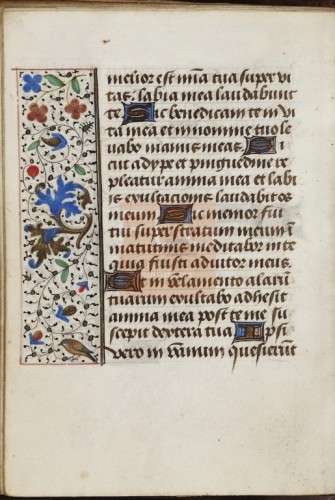 melior est mīa tua super vi
tas, labia mea laudabunt
te Sic benedicam te in vi
ta mea et in nomine tuo le
vabo manus meas. Si
cut adype et pinguedine re
pleatur anima mea et labi
is exultacionis laudabit os
meum. Sic memor fui
tui super stratum meum ī
matutinis meditabor in te
quia fuisti adiutor meus.
Et in velamento alarum
tuarum exultabo adhesit
anima mea post te me su
scepit dextera tua Ipsi
vero in vanum quesierūt